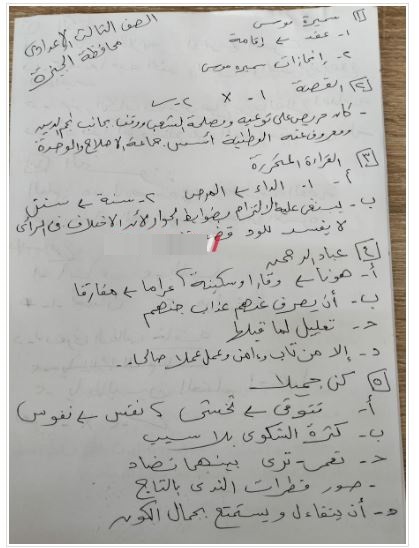 الصف الثالث الإعدادى
محافظة الجيزة
١ سميرة موسى
١- عقد ← إقامة
٢- إنجازات سميرة موسى
٢ القصة ١- × ٢- س
- كان حريص على توعية ومصلحة الشعب ووقف بجانب
ومعروف عنه الوطنية أسس جماعة الإصلاح والوحدة
٣ القراءة المتحررة
أ- ١- الداء ← المرض ٢- سنة ← سنن
ب- ينبغى عليه الالتزام بضوابط الحوار لأن الاختلاف فى الرأى
لا يفسد للود
٤ عباد الرحمن
أ- هونا ← وقارا وسكينة، غراما ← مفارقا
ب- أن يصرف عنهم عذاب جهنم
ج- تعليل لما قبلها
د- إلا من تاب وءامن وعمل عملا صالحا.
٥ كن جميلا
أ- تتوقى ← تخشى، نفيس ← نفوس
ب- كثرة الشكوى بلا سبب
ج- تعمى - ترى بينهما تضاد
- صور قطرات الندى بالتاج
هـ- أن يتفاءل ويستمتع بجمال الكون